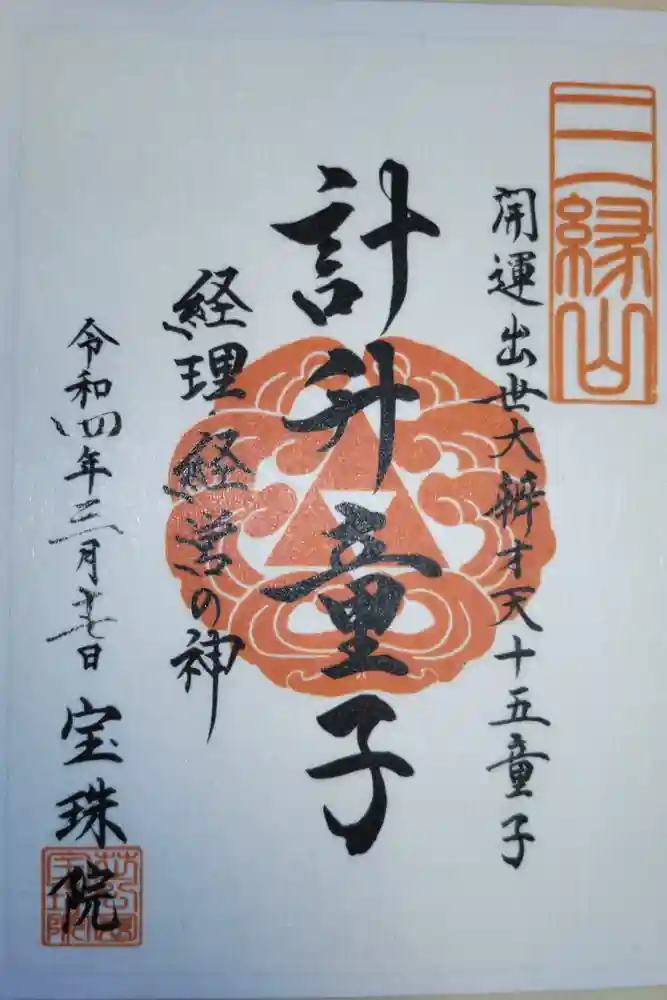 三縁山
開運出世大辨才天十五童子
計升童子
経理・経営の神
令和四年三月十七日
宝珠院